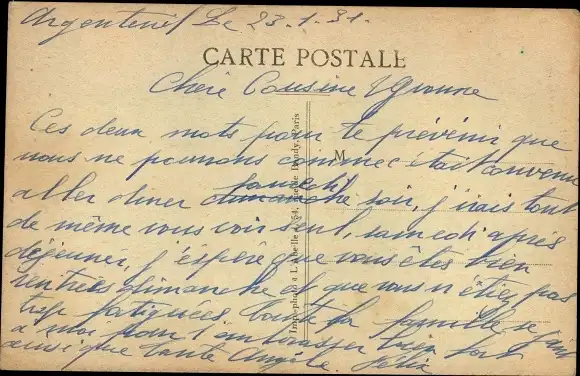 Argenteuil Le 23.1.31.
CARTE POSTALE
Chère Cousine Yvonne
Ces deux mots pour te prévenir que
nous ne pourrons comme c'était convenu
M
samedi
aller diner dimanche soir, j'irais tout
de même vous voir seul, samedi après
déjeuner, j'éspère que vous êtes bien
rentrées dimanche et que vous n'étiez pas
trop fatiguées, toute la famille se joint
a moi pour t'embrasser bien fort
ainsi que tante Angèle. Félix
Imp-photo à L 64, Paris